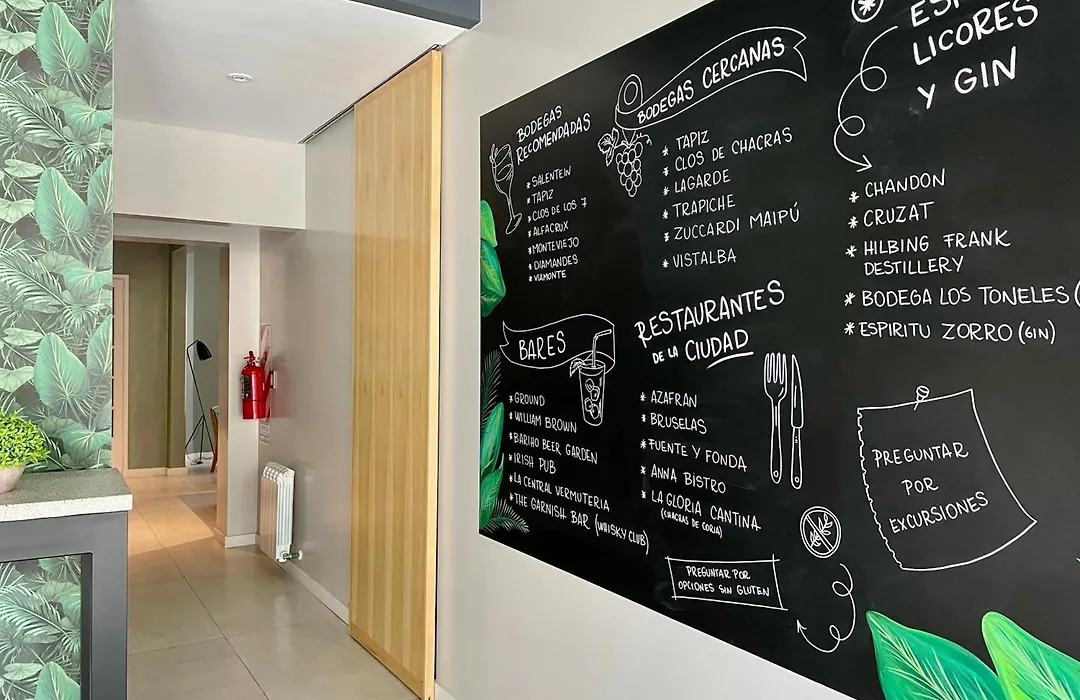 BODEGAS
RECOMENDADAS
* SALENTEIN
* TAPIZ
* CLOS DE LOS 7
* ALFACRUX
* MONTEVIEJO
* DIAMANDES
* VIAMONTE
BODEGAS CERCANAS
* TAPIZ
* CLOS DE CHACRAS
* LAGARDE
* TRAPICHE
* ZUCCARDI MAIPÚ
* VISTALBA
LICORES
Y GIN
* CHANDON
* CRUZAT
* HILBING FRANK
DESTILLERY
* BODEGA LOS TONELES (
* ESPIRITU ZORRO (GIN)
BARES
* GROUND
* WILLIAM BROWN
* BARIHO BEER GARDEN
* IRISH PUB
* LA CENTRAL VERMUTERIA
* THE GARNISH BAR (WHISKY CLUB)
RESTAURANTES
DE LA CIUDAD
* AZAFRAN
* BRUSELAS
* FUENTE Y FONDA
* ANNA BISTRO
* LA GLORIA CANTINA
(CHACRAS DE CORIA)
PREGUNTAR POR
OPCIONES SIN GLUTEN
PREGUNTAR
POR
EXCURSIONES